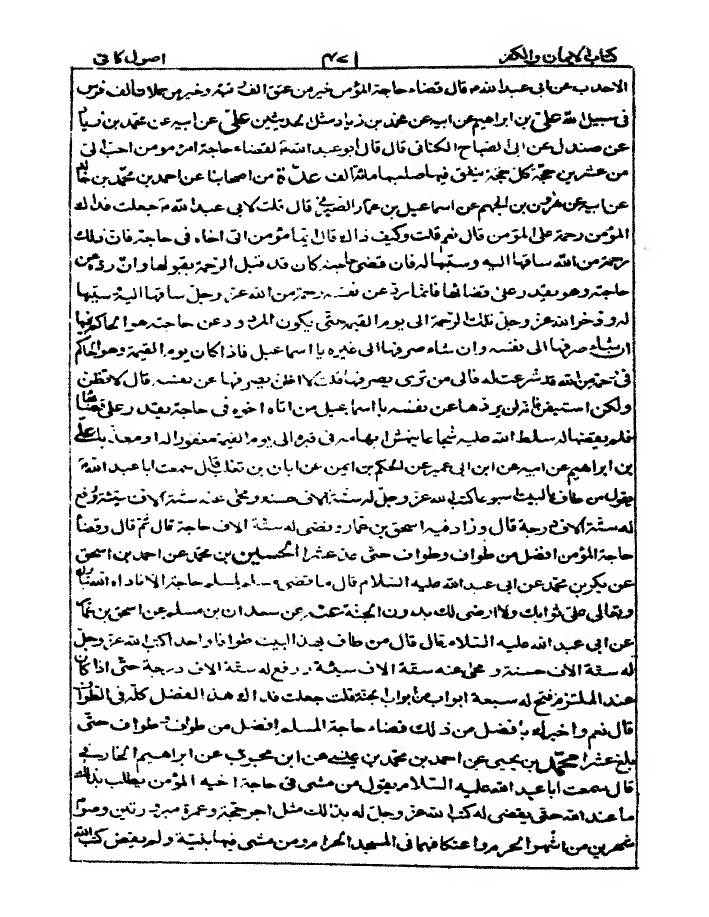 كتاب الايمان والكفر ٤٧١ اصول كافى
الاحدب عن ابى عبد الله م قال قضاء حاجة المؤمن خير من عتق الف رقبة وخير من حملان الف فرس
فى سبيل الله على بن ابراهيم عن ابيه عن محمد بن زياد مثل الحديثين على عن ابيه عن محمد بن زياد
عن صندل عن ابى الصباح الكنانى قال قال ابو عبد الله م لقضاء حاجة امرء مومن احب الى
من عشرين حجة كل حجة ينفق فيها صاحبها مائة الف عدة من اصحابنا عن احمد بن محمد بن خالد
عن ابيه عن هرون بن الجهم عن اسماعيل بن عمار الصيرفى قال قلت لابى عبد الله م جعلت فداك
المؤمن رحمة على المؤمن قال نعم قلت وكيف ذاك قال ايما مؤمن اتى اخاه فى حاجة فان ذلك
رحمة من الله ساقها اليه وسببها له فان قضى حاجته كان قد قبل الرحمة بقبولها وان رده عن
حاجته وهو يقدر على قضائها فانما رد عن نفسه رحمة من الله عز وجل ساقها اليه وسببها
له وذخر الله عز وجل تلك الرحمة الى يوم القيمة حتى يكون المردود عن حاجته هو الحاكم فيها
ان شاء صرفها الى نفسه وان شاء صرفها الى غيره يا اسماعيل فاذا كان يوم القيمة وهو الحاكم
فى رحمة من الله قد شرعت له فالى من ترى يصرفها قلت لا اظن يصرفها عن نفسه قال لا تظن
ولكن استيقن فانه لن يردها عن نفسه يا اسماعيل من اتاه اخوه فى حاجة يقدر على قضائها
فلم يقضها له سلط الله عليه شجاعا ينهش ابهامه فى قبره الى يوم القيمة مغفورا له او معذبا على
بن ابراهيم عن ابيه عن ابن ابى عمير عن الحكم بن ايمن عن ابان بن تغلب قال سمعت ابا عبد الله م
يقول من طاف بالبيت اسبوعا كتب الله عز وجل له ستة الاف حسنة ومحى عنه ستة الاف سيئة ورفع
له ستة الاف درجة قال وزاد فيه اسحق بن عمار وقضى له ستة الاف حاجة قال ثم قال وقضاء
حاجة المؤمن افضل من طواف وطواف حتى عد عشرا الحسين بن محمد عن احمد بن اسحق
عن بكر بن محمد عن ابى عبد الله عليه السلام قال ما قضى مسلم لمسلم حاجة الا ناداه الله تبارك
وتعالى على ثوابك ولا ارضى لك بدون الجنة عنه عن سعدان بن مسلم عن اسحق بن عمار
عن ابى عبد الله عليه السلام قال قال من طاف بهذا البيت طوافا واحدا كتب الله عز وجل
له ستة الاف حسنة ومحى عنه ستة الاف سيئة ورفع له ستة الاف درجة حتى اذا كان
عند الملتزم فتح له سبعة ابواب من ابواب الجنة قلت جعلت فداك هذا الفضل كله فى الطواف
قال نعم واخبرك بافضل من ذلك قضاء حاجة المسلم افضل من طواف وطواف حتى
بلغ عشرا محمد بن يحيى عن احمد بن محمد بن عيسى عن ابن محبوب عن ابراهيم الخارقى
قال سمعت ابا عبد الله عليه السلام يقول من مشى فى حاجة اخيه المؤمن يطلب بذلك
ما عند الله حتى يقضى له كتب الله عز وجل له بذلك مثل اجر حجة وعمرة مبرورتين وصوم
شهرين من اشهر الحرم واعتكافهما فى المسجد الحرام ومن مشى فيها بنية ولم يقض كتب الله